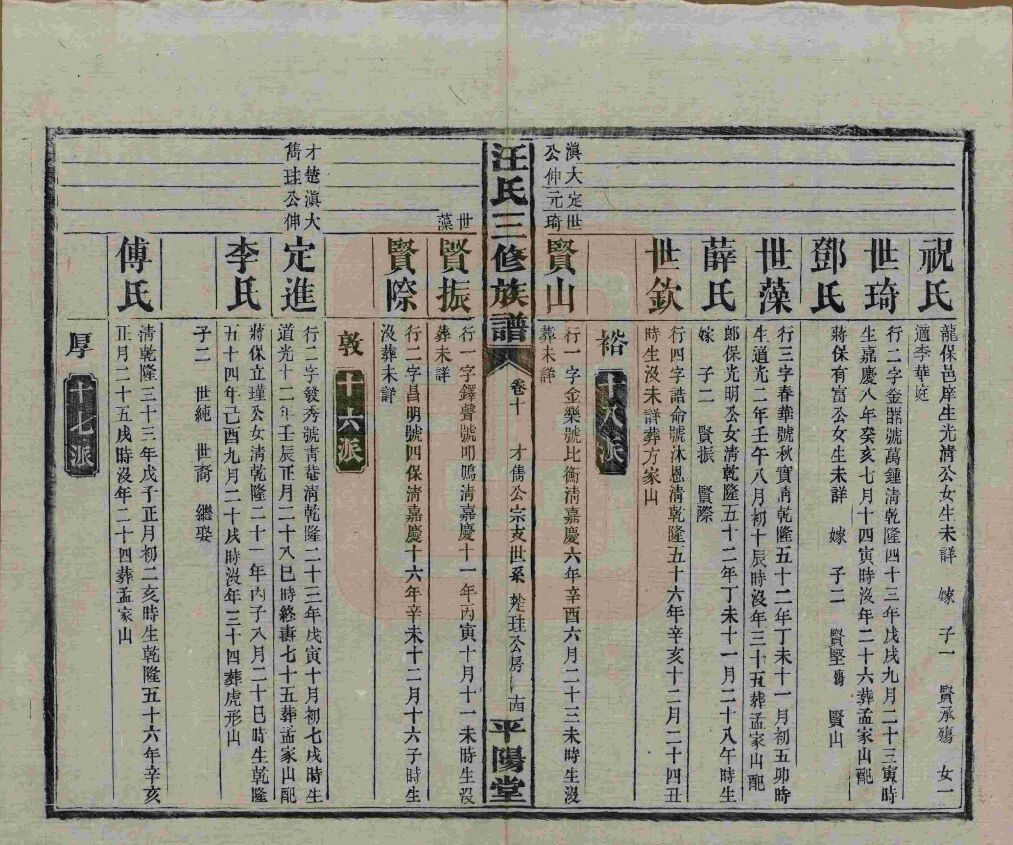 祝氏
龍保邑庠生光清公女生未詳 嫁 子一 賢承殤 女一
適李華庭
世琦
行二字金器號萬鍾清乾隆四十三年戊戌九月二十三寅時
生嘉慶八年癸亥七月十四寅時沒年二十六葬孟家山配
鄧氏
蔣保有富公女生未詳 嫁 子二 賢堅殤 賢山
世藻
行三字春華號秋實清乾隆五十二年丁未十一月初五卯時
生道光二年壬午八月初十辰時沒年三十五葬孟家山配
薛氏
郎保光明公女清乾隆五十二年丁未十一月二十八午時生
嫁 子二 賢振 賢際
世欽
行四字誥命號沐恩清乾隆五十六年辛亥十二月二十四丑
時生沒未詳葬方家山
裕 十八派
滇大定世
公伸元琦
賢山
行一字金樂號比衡清嘉慶六年辛酉六月二十三未時生沒
葬未詳
汪氏三修族譜 卷十 才雋公宗支世系 楚珪公房 平陽堂
世
藻
賢振
行一字鐸聲號叩鳴清嘉慶十一年丙寅十月十一未時生沒
葬未詳
賢際
行二字昌明號四保清嘉慶十六年辛未十二月十六子時生
沒葬未詳
敦 十六派
才楚滇大
雋珪公伸
定進
行二字發秀號青菴清乾隆二十三年戊寅十月初七戌時生
道光十二年壬辰正月二十八巳時終壽七十五葬孟家山配
李氏
蔣保立瑾公女清乾隆二十一年丙子八月二十巳時生乾隆
五十四年己酉九月二十戌時沒年三十四葬虎形山
子二 世純 世裔 繼娶
傅氏
清乾隆三十三年戊子正月初二亥時生乾隆五十六年辛亥
正月二十五戌時沒年二十四葬孟家山
厚 十七派